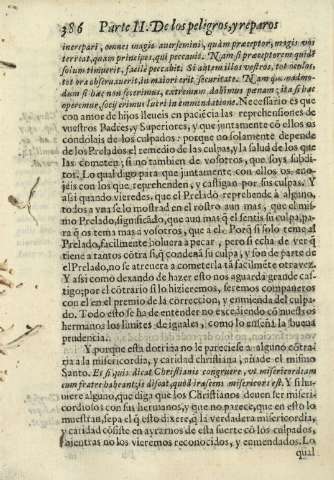 386 Parte II. De los peligros, y reparos
inerepari, omnes magis aversemini, quàm præceptor, magis vos
terreat, quàm princeps, qui peccavit. Nam si præceptorem quidē
solum timuerit, facilè peccabit. Si autem illos vestros, tot oculos,
tot ora observaverit, in maiori erit securitate. Nam quēadmo-
dum si hæc non fecerimus, extremam dabimus pœnam; ita si hæc
operemur, socij erimus lucri in emmendatione. Necessario es que
con amor de hijos lleueis en paciēcia las reprehensiones de
vuestros Padres, y Superiores, y que juntamente cō ellos os
condolais de los culpados: porque no solamente depende
de los Prelados el remedio de las culpas, y la salud de los que
las cometen; si no tambien de vosotros, que soys subdi-
tos. Lo qual digo para que juntamente con ellos os eno-
jeis con los que reprehenden, y castigan por sus culpas. Y
assi quando vieredes, que el Prelado reprehende à alguno,
todos a vna se lo mostrad en el rostro aun mas, que el mis-
mo Prelado, significādo, que aun mas q̃ el sentis su culpa; pa-
ra q̃ os tema mas a vosotros, que a el. Porq̃ si solo teme al
Prelado, facilmente boluera a pecar; pero si echa de ver q̃
tiene a tantos cōtra si, q̃ condenā su culpa, y son de parte de
el Prelado, no se atreuera a cometerla tā facilmēte otra vez.
Y assi como dexando de hazer esto nos aguarda grande cas-
tigo; por el cōtrario si lo hizieremos, seremos compañeros
con el en el premio de la correccion, y enmienda del culpa-
do. Todo esto se ha de entender no excediēdo cō nuestros
hermanos los limites de iguales, como lo enseña la buena
prudencia.
Y porque esta dotrina no le pareciese a alguno cōtra-
ria a la misericordia, y caridad christiana, añade el mismo
Santo. Es si quis dicat Christianis congruere, vt misericordiam
cum fratre habeant; is discat, quòd irasci misericors est. Y si hu-
uiere alguno, que diga que los Christianos deuen ser miseri-
cordiosos con sus hermanos, y que no parece, que en esto lo
muestran, sepa el q̃ esto dixere, q̃ la verdadera misericordia,
y caridad cōsiste en ayrarnos de esta suerte cō los culpados,
mientras no los vieremos reconocidos, y enmendados. Lo
qual